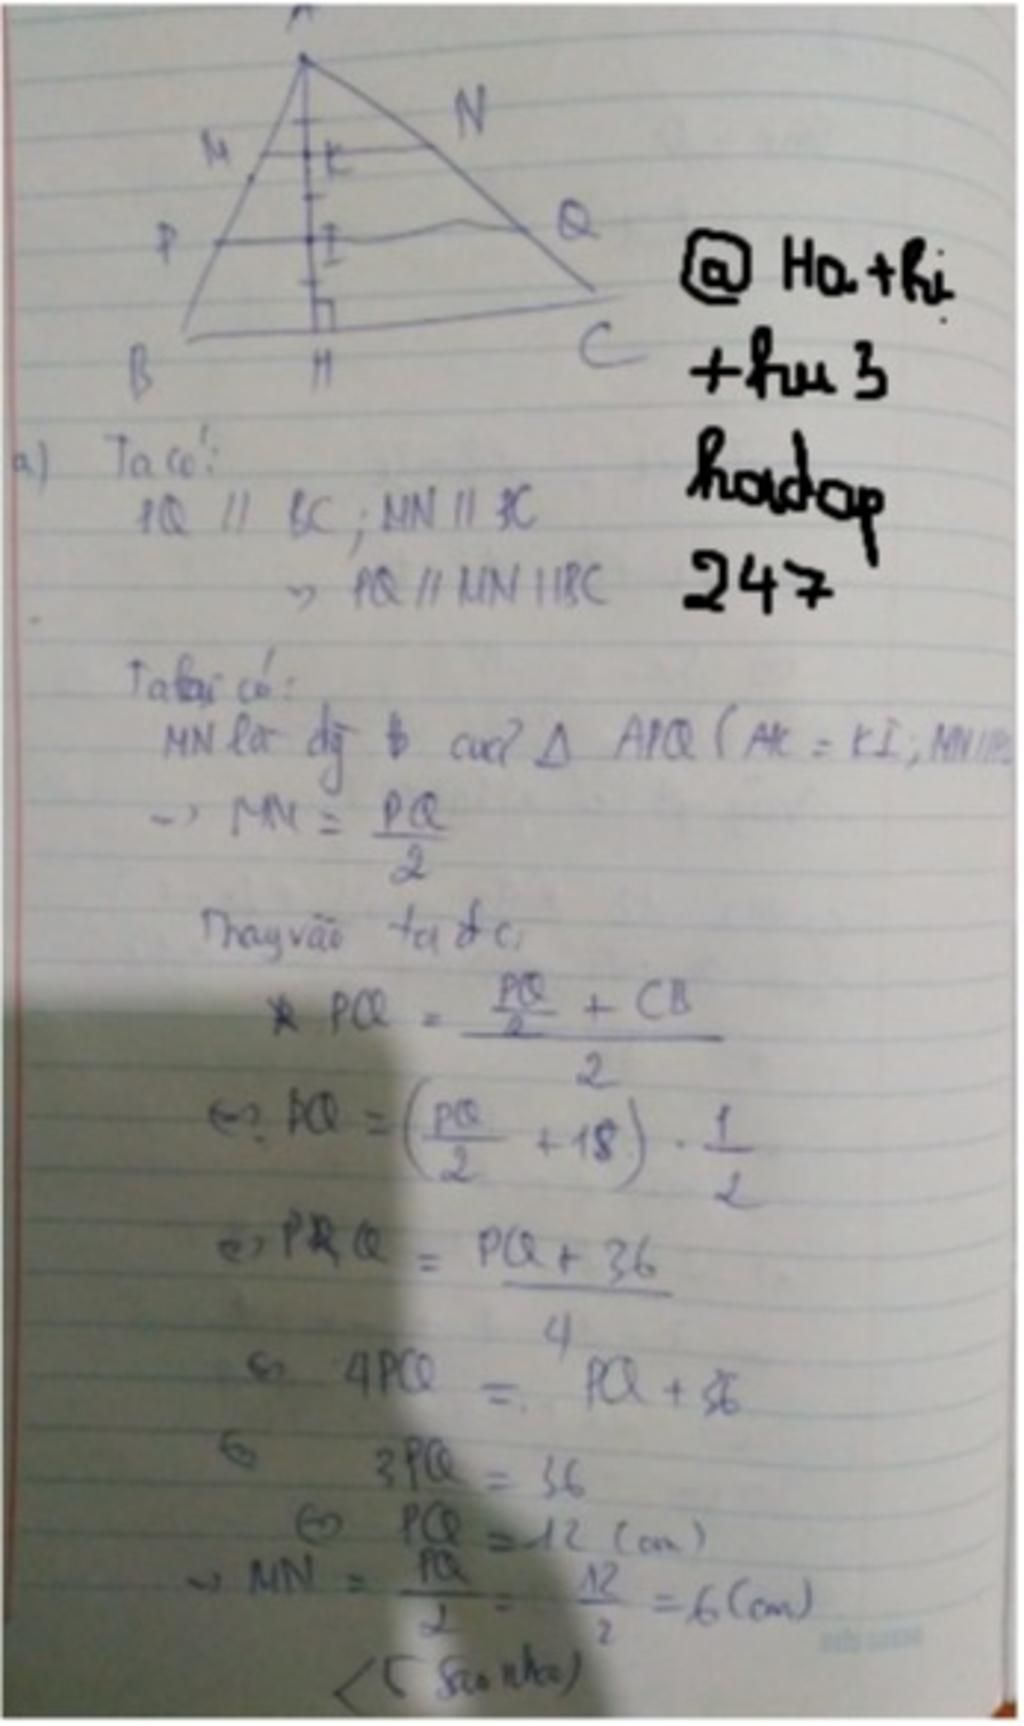 A
M
K
N
P
I
Q
B
H
C
@ Ha + hị
+ hu 3
hoidap
247
a) Ta có:
PQ // BC ; MN // BC
~> PQ // MN // BC
Ta lại có:
MN là đg tb của Δ APQ ( AK = KI ; MN //
~> MN = PQ/2
Thay vào ta đc,
* PQ = (PQ/2 + CB)/2
<=> PQ = (PQ/2 + 18) . 1/2
<=> PQ = (PQ + 36)/4
<=> 4PQ = PQ + 36
<=> 3PQ = 36
<=> PQ = 12 (cm)
~> MN = PQ/2 = 12/2 = 6 (cm)
< 5 sao nha)